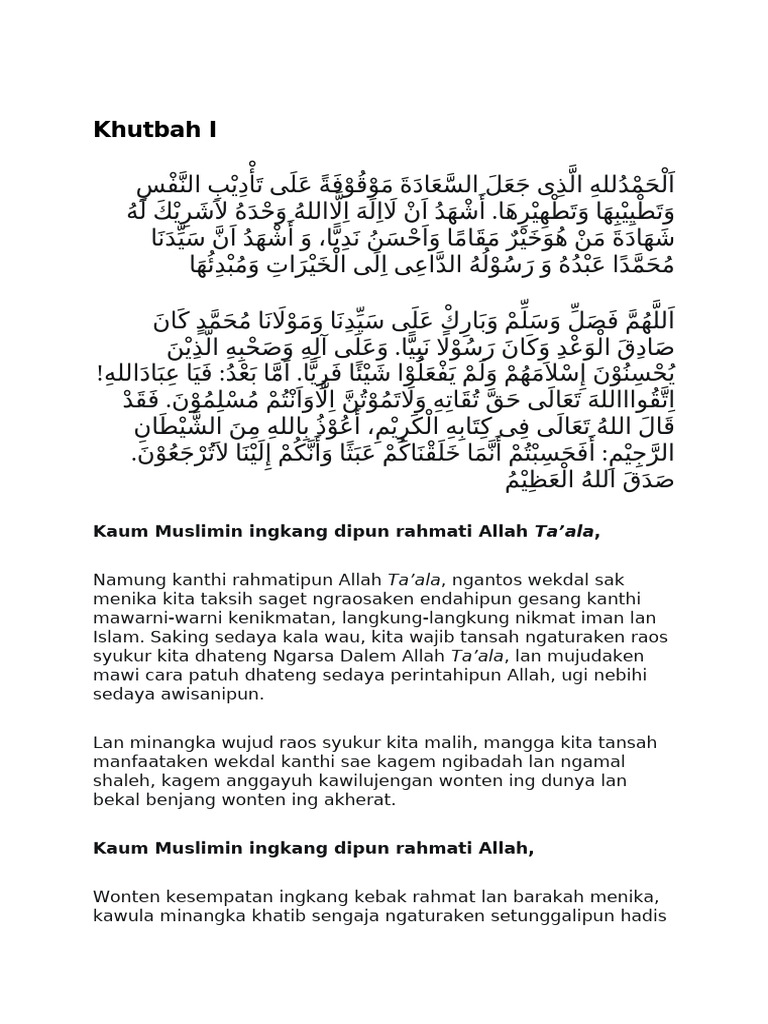 Khutbah I
اَلْحَمْدُللهِ الَّذِى جَعَلَ السَّعَادَةَ مَوْقُوْفَةً عَلَى تَأْدِيْبِ النَّفْسِ
وَتَطْيِيْبِهَا وَتَطْهِيْرِهَا. أَشْهَدُ اَنْ لَااِلَهَ اِلَّااللهُ وَحْدَهُ لاَشَرِيْكَ لَهُ
شَهَادَةَ مَنْ هُوَخَيْرٌ مَقَامًا وَاَحْسَنُ نَدِيًّا، وَ أَشْهَدُ اَنَّ سَيِّدَنَا
مُحَمَّدًا عَبْدُهُ وَ رَسُوْلُهُ الدَّاعِى اِلَى الْخَيْرَاتِ وَمُبْدِئُهَا
اَللَّهُمَّ فَصَلِّ وَسَلِّمْ وَبَارِكْ عَلَى سَيِّدِنَا وَمَوْلَانَا مُحَمَّدٍ كَانَ
صَادِقَ الْوَعْدِ وَكَانَ رَسُوْلًا نَبِيًّا. وَعَلَى آلِهِ وَصَحْبِهِ الَّذِيْنَ
يُحْسِنُوْنَ إِسْلاَمَهُمْ وَلَمْ يَفْعَلُوْا شَيْئًا فَرِيًّا. اَمَّا بَعْدُ: فَيَا عِبَادَاللهِ!
اِتَّقُوااااللهَ تَعَالَى حَقَّ تُقَاتِهِ وَلَاتَمُوْتُنَّ اِلَّاوَاَنْتُمْ مُسْلِمُوْنَ. فَقَدْ
قَالَ اللهُ تَعَالَى فِى كِتَابِهِ الْكَرِيْمِ، أَعُوْذُ بِاللهِ مِنَ الشَّيْطَانِ
الرَّجِيْمِ: أَفَحَسِبْتُمْ أَنَّمَا خَلَقْنَاكُمْ عَبَثًا وَأَنَّكُمْ إِلَيْنَا لاَتُرْجَعُوْنَ.
صَدَقَ اَللهُ الْعَظِيْمُ
Kaum Muslimin ingkang dipun rahmati Allah Ta’ala,
Namung kanthi rahmatipun Allah Ta’ala, ngantos wekdal sak
menika kita taksih saget ngraosaken endahipun gesang kanthi
mawarni-warni kenikmatan, langkung-langkung nikmat iman lan
Islam. Saking sedaya kala wau, kita wajib tansah ngaturaken raos
syukur kita dhateng Ngarsa Dalem Allah Ta’ala, lan mujudaken
mawi cara patuh dhateng sedaya perintahipun Allah, ugi nebihi
sedaya awisanipun.
Lan minangka wujud raos syukur kita malih, mangga kita tansah
manfaataken wekdal kanthi sae kagem ngibadah lan ngamal
shaleh, kagem anggayuh kawilujengan wonten ing dunya lan
bekal benjang wonten ing akherat.
Kaum Muslimin ingkang dipun rahmati Allah,
Wonten kesempatan ingkang kebak rahmat lan barakah menika,
kawula minangka khatib sengaja ngaturaken setunggalipun hadis